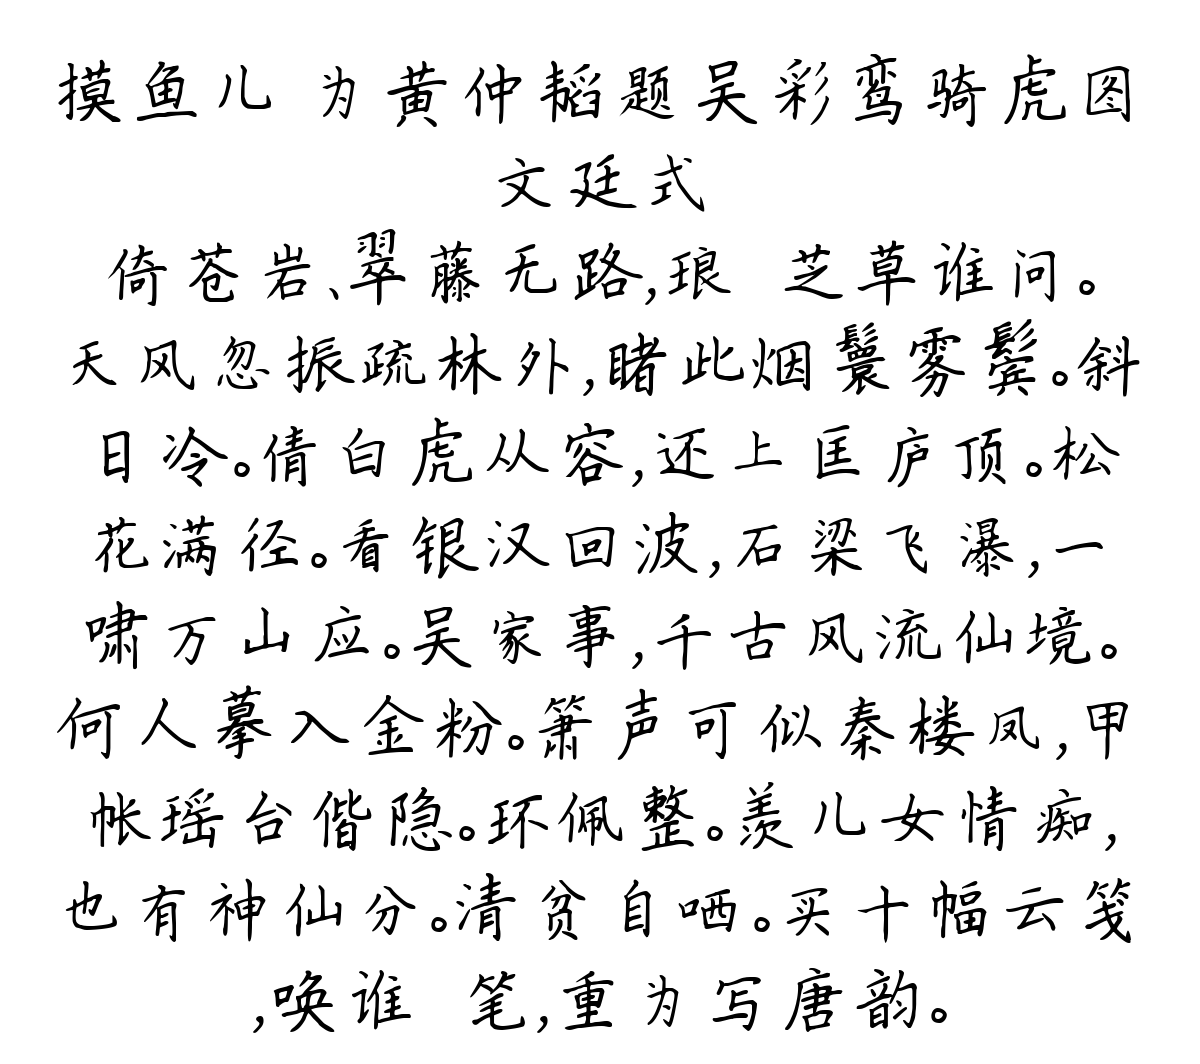 摸鱼儿 为黄仲韬题吴彩鸾骑虎图
文廷式
倚苍岩、翠藤无路,琅 芝草谁问。
天风忽振疏林外,睹此烟鬟雾鬓。斜
日冷。倩白虎从容,还上匡庐顶。松
花满径。看银汉回波,石梁飞瀑,一
啸万山应。吴家事,千古风流仙境。
何人摹入金粉。箫声可似秦楼凤,甲
帐瑶台偕隐。环佩整。羡儿女情痴,
也有神仙分。清贫自哂。买十幅云笺
,唤谁 笔,重为写唐韵。